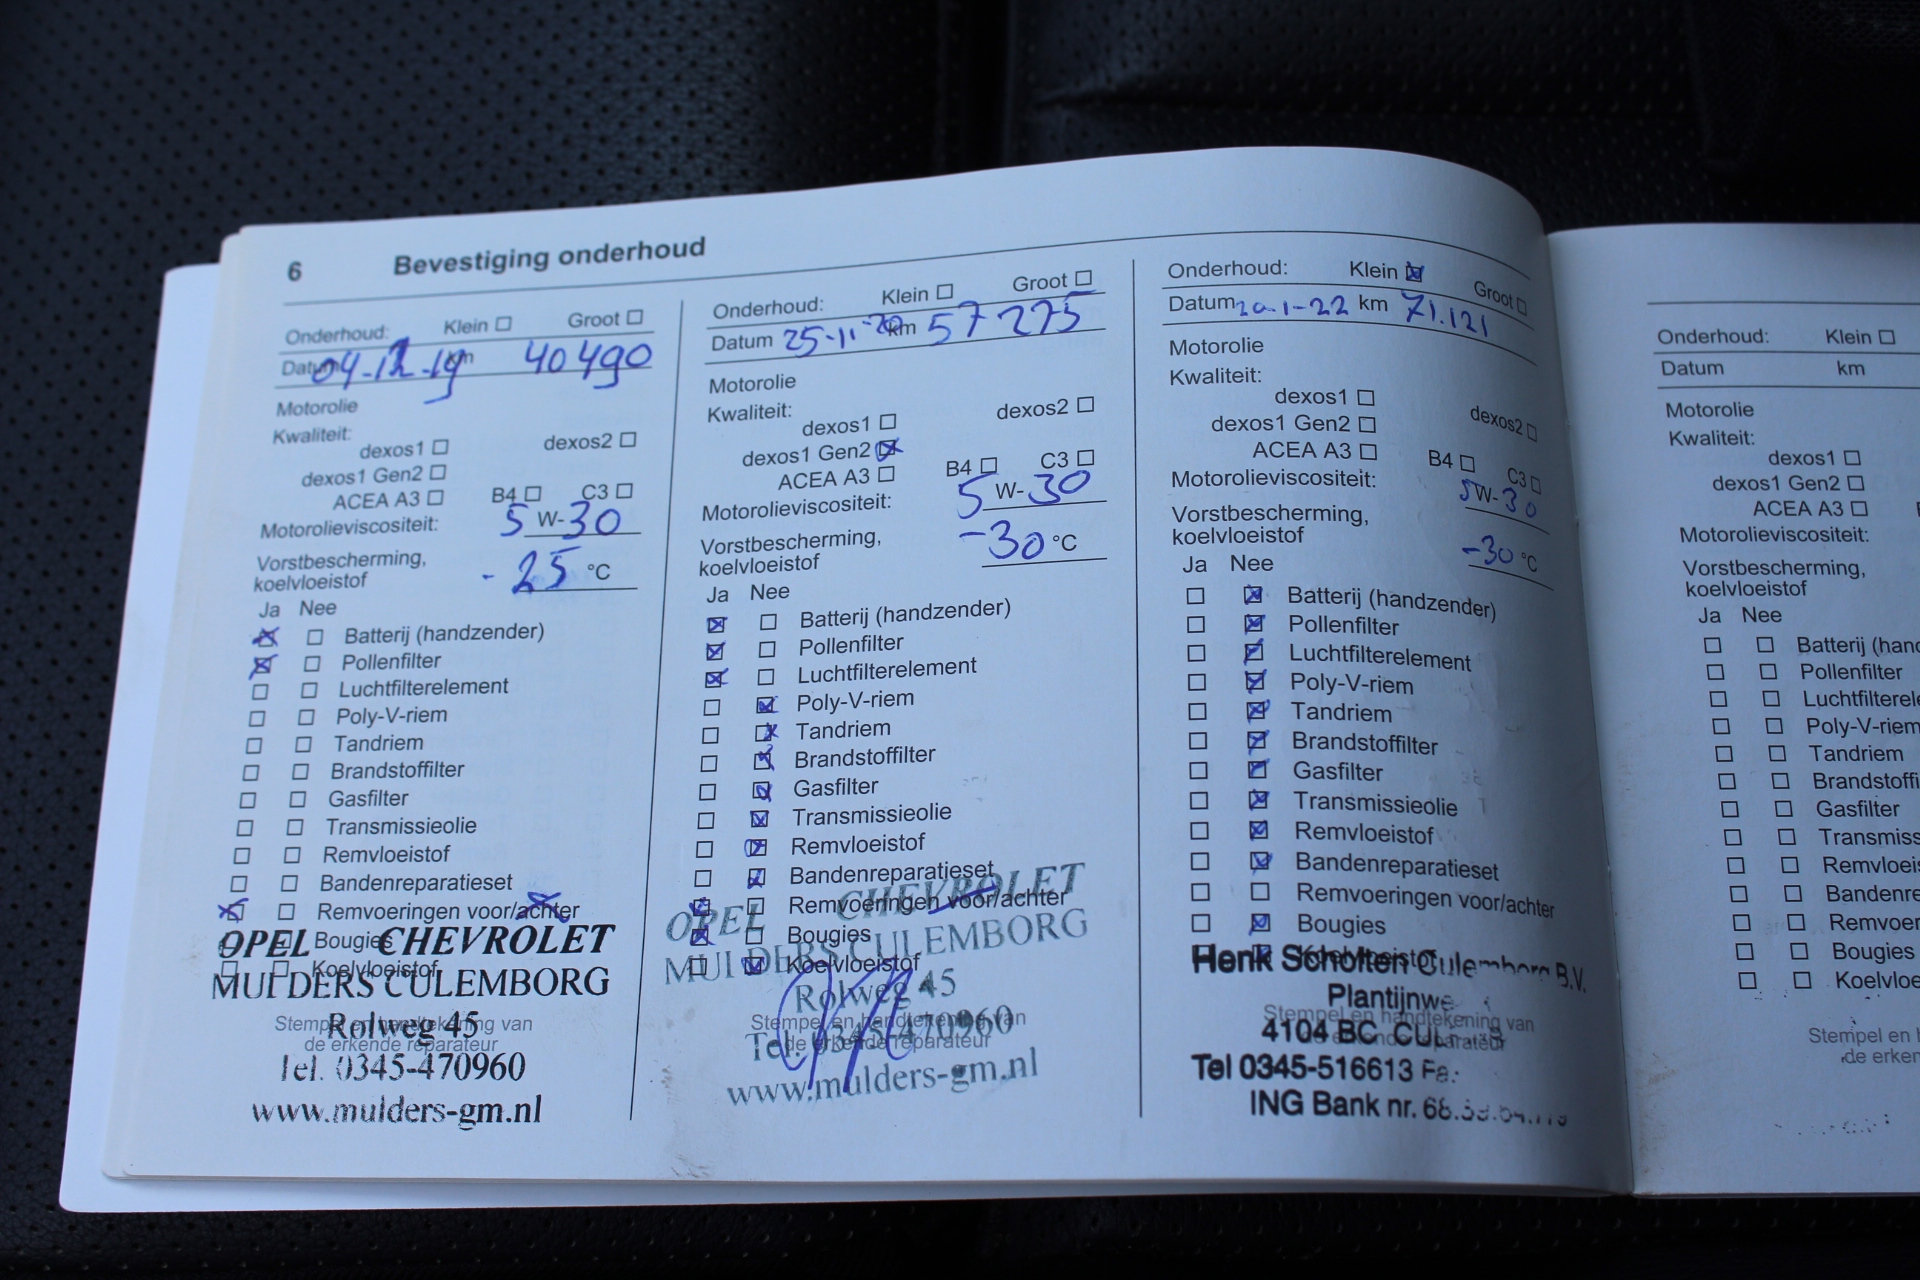 6 Bevestiging onderhoud
Onderhoud: Klein Groot
Datum 04-12-19 km 40490
Motorolie
Kwaliteit:
dexos1 dexos2
dexos1 Gen2
ACEA A3 B4 C3
Motorolieviscositeit: 5 W-30
Vorstbescherming,
koelvloeistof -25 °C
Ja Nee
Batterij (handzender)
Pollenfilter
Luchtfilterelement
Poly-V-riem
Tandriem
Brandstoffilter
Gasfilter
Transmissieolie
Remvloeistof
Bandenreparatieset
Remvoeringen voor/achter
Bougies
Koelvloeistof
Stempel en handtekening van
de erkende reparateur
OPEL CHEVROLET
MULDERS CULEMBORG
Rolweg 45
Tel. 0345-470960
www.mulders-gm.nl
Onderhoud: Klein Groot
Datum 25-11-20 km 57275
Motorolie
Kwaliteit:
dexos1 dexos2
dexos1 Gen2
ACEA A3 B4 C3
Motorolieviscositeit: 5 W-30
Vorstbescherming,
koelvloeistof -30 °C
Ja Nee
Batterij (handzender)
Pollenfilter
Luchtfilterelement
Poly-V-riem
Tandriem
Brandstoffilter
Gasfilter
Transmissieolie
Remvloeistof
Bandenreparatieset
Remvoeringen voor/achter
Bougies
Koelvloeistof
Stempel en handtekening van
de erkende reparateur
OPEL CHEVROLET
MULDERS CULEMBORG
Rolweg 45
Tel. 0345-470960
www.mulders-gm.nl
Onderhoud: Klein Groot
Datum 20-1-22 km 71.121
Motorolie
Kwaliteit:
dexos1 dexos2
dexos1 Gen2
ACEA A3 B4 C3
Motorolieviscositeit: 5 W-30
Vorstbescherming,
koelvloeistof -30 °C
Ja Nee
Batterij (handzender)
Pollenfilter
Luchtfilterelement
Poly-V-riem
Tandriem
Brandstoffilter
Gasfilter
Transmissieolie
Remvloeistof
Bandenreparatieset
Remvoeringen voor/achter
Bougies
Koelvloeistof
Stempel en handtekening van
de erkende reparateur
Henk Scholten Culemborg B.V.
4104 BC
Tel 0345-516613
ING Bank nr.
Onderhoud: Klein
Datum km
Motorolie
Kwaliteit:
dexos1
dexos1 Gen2
ACEA A3
Motorolieviscositeit:
Vorstbescherming,
koelvloeistof
Ja Nee
Batterij (hand
Pollenfilter
Luchtfilterele
Poly-V-riem
Tandriem
Brandstoffi
Gasfilter
Transmiss
Remvloeis
Bandenre
Remvoer
Bougies
Koelvloe
Stempel en
de erken